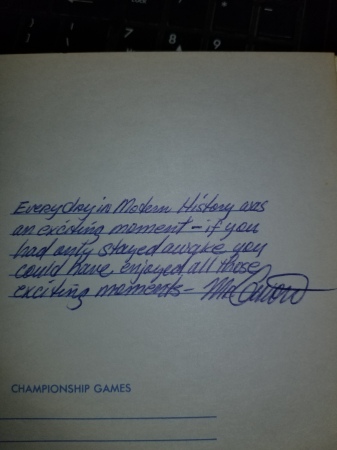 7 8 9
Everyday in Modern History was
an exciting moment - if you
had only stayed awake you
could have enjoyed all those
exciting moments -
CHAMPIONSHIP GAMES